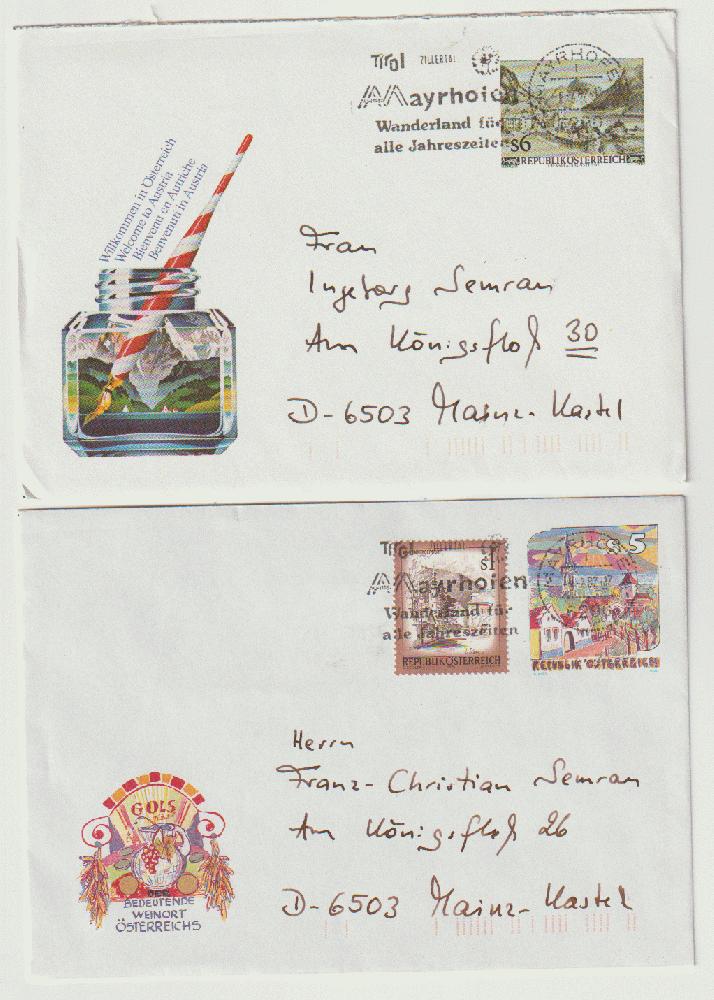 Tirol ZILLERTAL
Mayrhofen
Wanderland für
alle Jahreszeiten
MAYRHOFEN
s6
REPUBLIK ÖSTERREICH
Willkommen in Österreich
Welcome to Austria
Bienvenu en Autriche
Benvenuti in Austria
Frau
Ingeborg Semrau
Am Königsfloß 30
D-6503 Mainz-Kastel
Tirol ZILLERTAL
Mayrhofen
Wanderland für
alle Jahreszeiten
s1
REPUBLIK ÖSTERREICH
S 5
REPUBLIK ÖSTERREICH
Herrn
Franz-Christian Semrau
Am Königsfloß 26
D-6503 Mainz-Kastel
GOLS
DER
BEDEUTENDE
WEINORT
ÖSTERREICHS